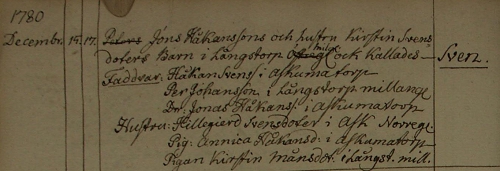 1780
Decembr. 15. 17. Peters Jöns Håkanssons och hustru Kirstin Svens
doters Barn i Långstorp milang ock kallades — Sven.
Faddrar: Håkan Svens: i Askumatorp
Per Johansson i Långstorp millang
Dr: Jonas Håkans: i Askumatorp
Hustru Hillegierd Svensdoter i Ask Norreg:
Pig: Annica Håkansd: i Askumatorp
Pigan Kirstin Månsdot: i Långst. mill.